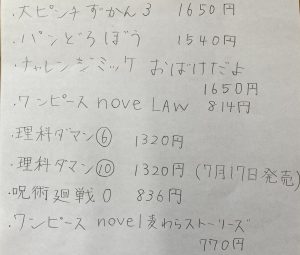 ・大ピンチずかん3 1650円
・パンどろぼう 1540円
・チャレンジミック おばけだよ
1650円
・ワンピース nove LAW 814円
・理科ダマン⑥ 1320円
・理科ダマン⑩ 1320円(7月17日発売)
・呪術廻戦0 836円
・ワンピース novel麦わらストーリーズ
770円